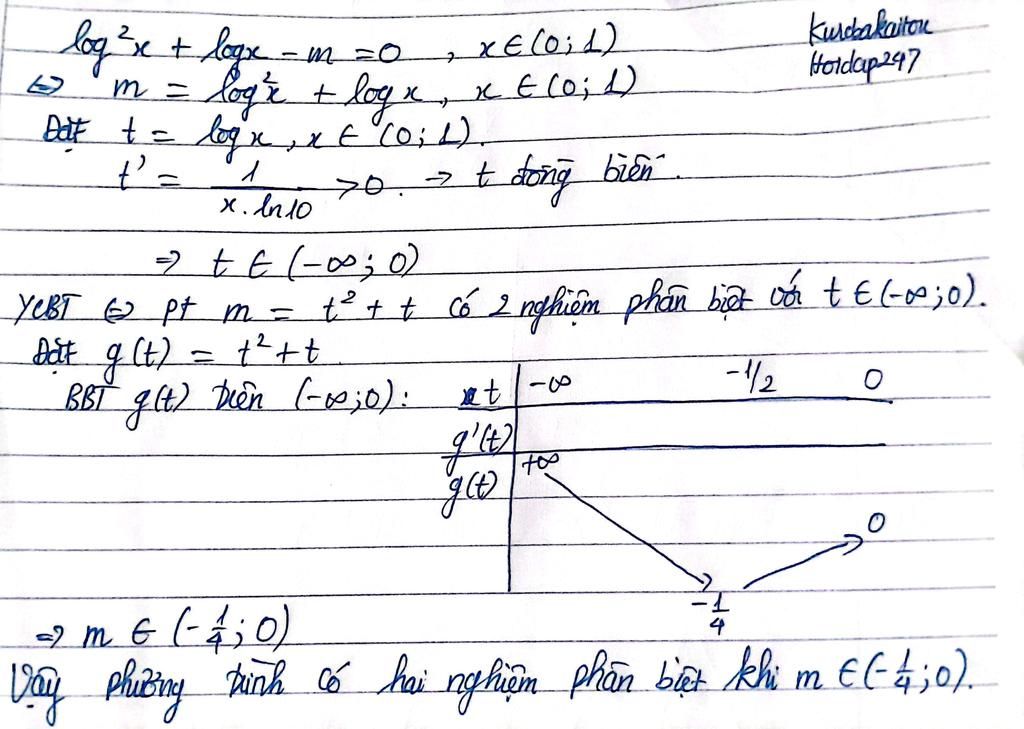 log²x + logx - m = 0 , x ∈ (0; 1)
Kurobakaitou
Hoidap247
⇔ m = log²x + log x, x ∈ (0; 1)
Đặt t = log x, x ∈ (0; 1).
t' = 1/(x.ln10) > 0. → t đồng biến.
⇒ t ∈ (-∞; 0)
YCBT ⇔ pt m = t² + t có 2 nghiệm phân biệt với t ∈ (-∞; 0).
Đặt g(t) = t² + t
BBT g(t) trên (-∞; 0):
t -∞ -1/2 0
g'(t)
g(t) +∞ -1/4 0
⇒ m ∈ (-1/4; 0)
Vậy phương trình có hai nghiệm phân biệt khi m ∈ (-1/4; 0).